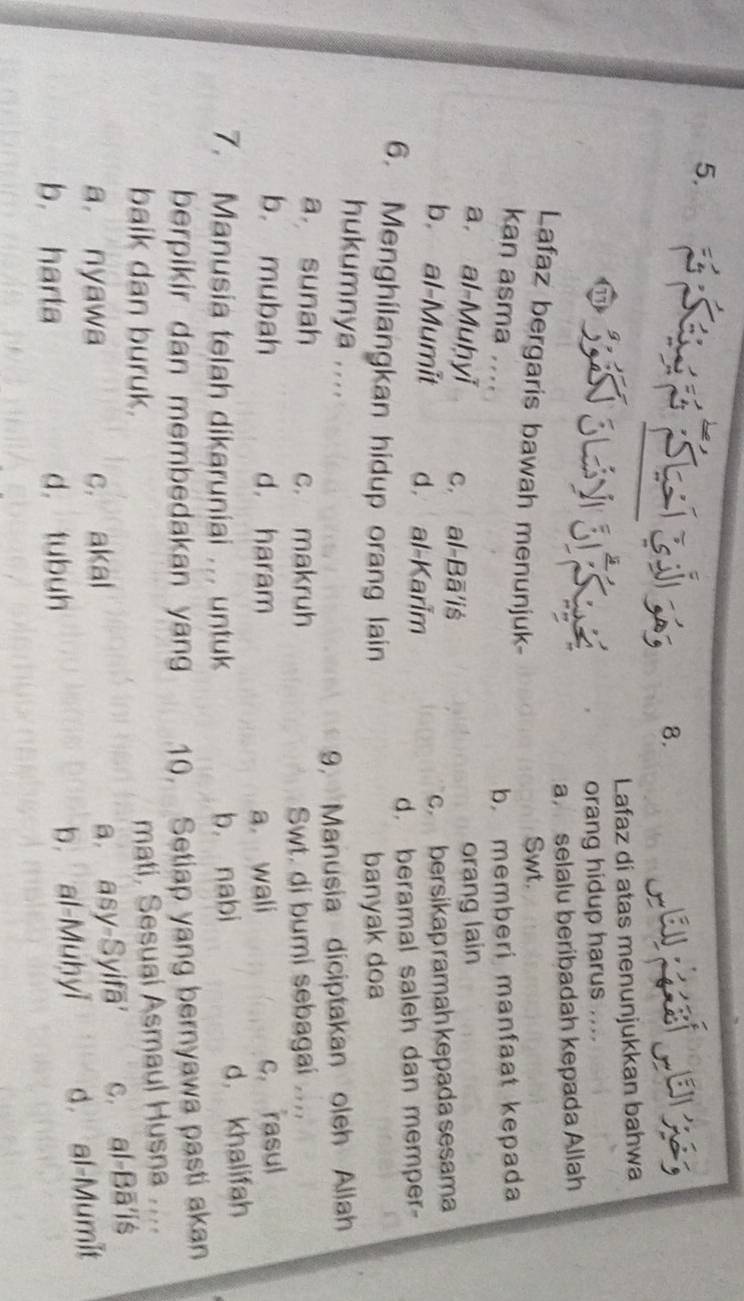 5. وَهُوَ الَّذِيْٓ اَحْيَاكُمْ ۖ ثُمَّ يُمِيْتُكُمْ ثُمَّ
يُحْيِيْكُمْ ۗ اِنَّ الْاِنْسَانَ لَكَفُوْرٌ
Lafaz bergaris bawah menunjuk-
kan asma ....
a. al-Muḥyī
c. al-Bā'iṡ
b. al-Mumīt
d. al-Karīm
6. Menghilangkan hidup orang lain
hukumnya ....
a. sunah
c. makruh
b. mubah
d. haram
7. Manusia telah dikaruniai ... untuk
berpikir dan membedakan yang
baik dan buruk.
a. nyawa
c. akal
b. harta
d. tubuh
8. وَخَيْرُ النَّاسِ اَنْفَعُهُمْ لِلنَّاسِ
Lafaz di atas menunjukkan bahwa
orang hidup harus ....
a. selalu beribadah kepada Allah
Swt.
b. memberi manfaat kepada
orang lain
c. bersikap ramah kepada sesama
d. beramal saleh dan memper-
banyak doa
9. Manusia diciptakan oleh Allah
Swt. di bumi sebagai ....
a. wali
c. rasul
b. nabi
d. khalifah
10. Setiap yang bernyawa pasti akan
mati. Sesuai Asmaul Husna ....
a. asy-Syifā'
c. al-Bā'iṡ
b. al-Muḥyī
d. al-Mumīt